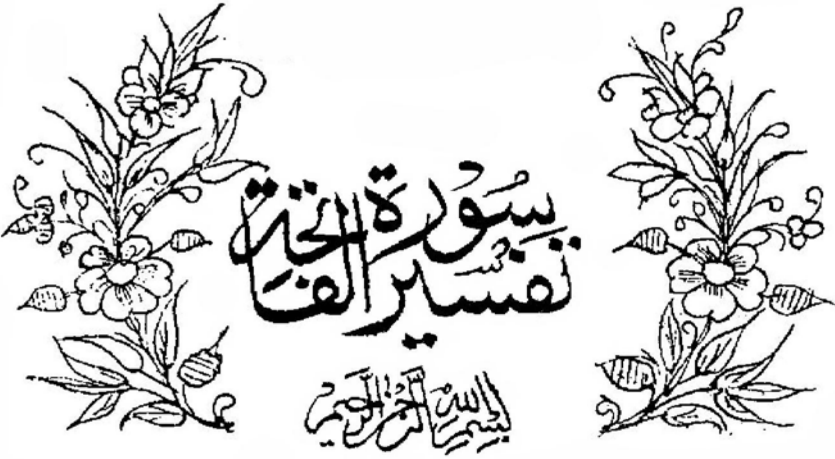 تفسير سُورة الفاتحة
بسم الله الرحمن الرحيم